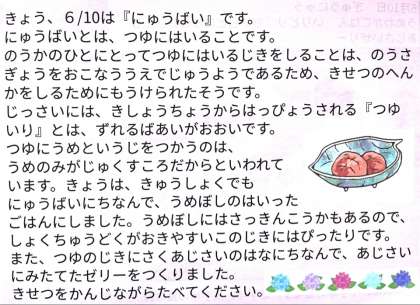 きょう、6/10は『にゅうばい』です。
にゅうばいとは、つゆにはいることです。
のうかのひとにとってつゆにはいるじきをしることは、のうさ
ぎょうをおこなううえでじゅうようであるため、きせつのへん
かをしるためにもうけられたそうです。
じっさいには、きしょうちょうからはっぴょうされる『つゆ
いり』とは、ずれるばあいがおおいです。
つゆにうめというじをつかうのは、
うめのみがじゅくすころだからといわれて
います。きょうは、きゅうしょくでも
にゅうばいにちなんで、うめぼしのはいった
ごはんにしました。うめぼしにはさっきんこうかもあるので、
しょくちゅうどくがおきやすいこのじきにはぴったりです。
また、つゆのじきにさくあじさいのはなにちなんで、あじさい
にみたてたゼリーをつくりました。
きせつをかんじながらたべてください。